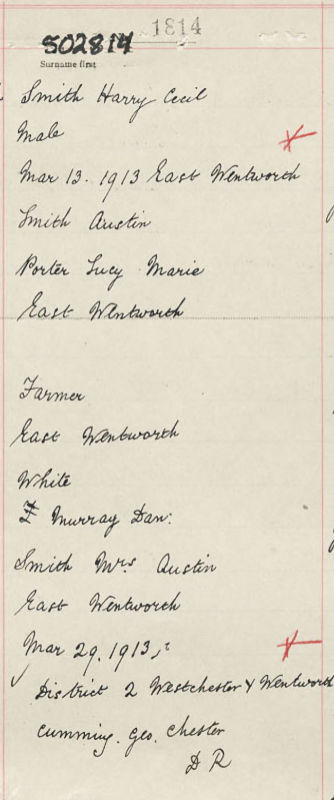 1814
502814
Surname first
Smith Harry Cecil
Male
Mar 13. 1913 East Wentworth
Smith Austin
Porter Lucy Marie
East Wentworth
Farmer
East Wentworth
White
Murray Dan:
Smith Mrs Austin
East Wentworth
Mar 29, 1913,
District 2 Westchester & Wentworth
Cumming. Geo. Chester
D R